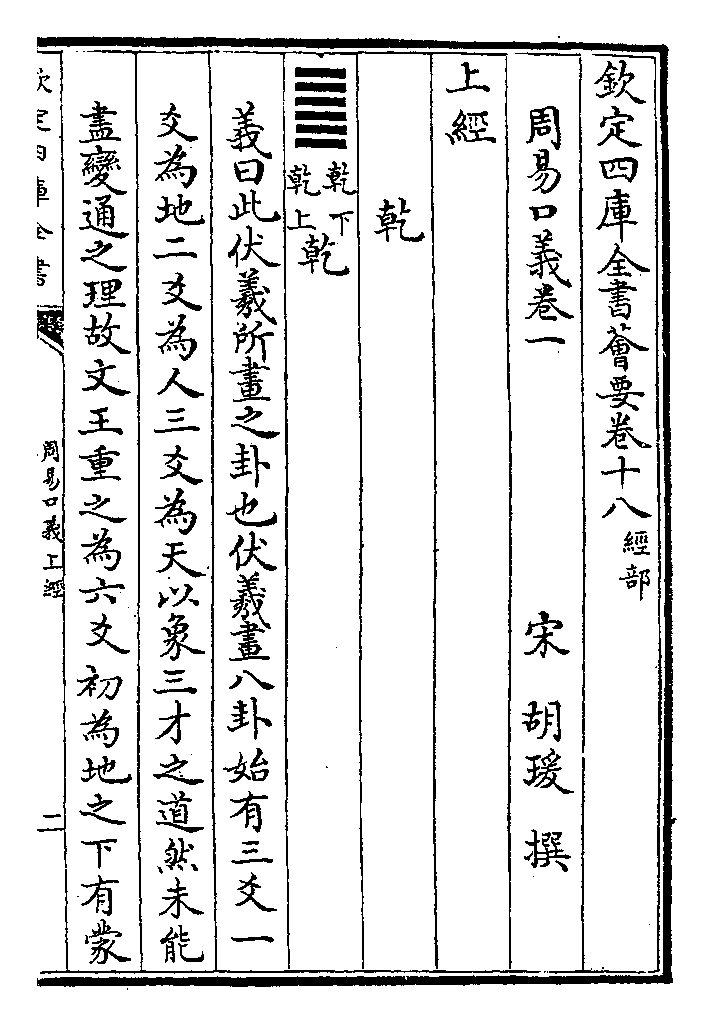 欽定四庫全書薈要卷十八 經部
周易口義卷一 宋 胡瑗 撰
上經
乾
䷀ 乾下乾上 乾
義曰此伏羲所畫之卦也伏羲畫八卦始有三爻一
爻為地二爻為人三爻為天以象三才之道然未能
盡變通之理故文王重之為六爻初為地之下有蒙
欽定四庫全書 周易口義上經 二